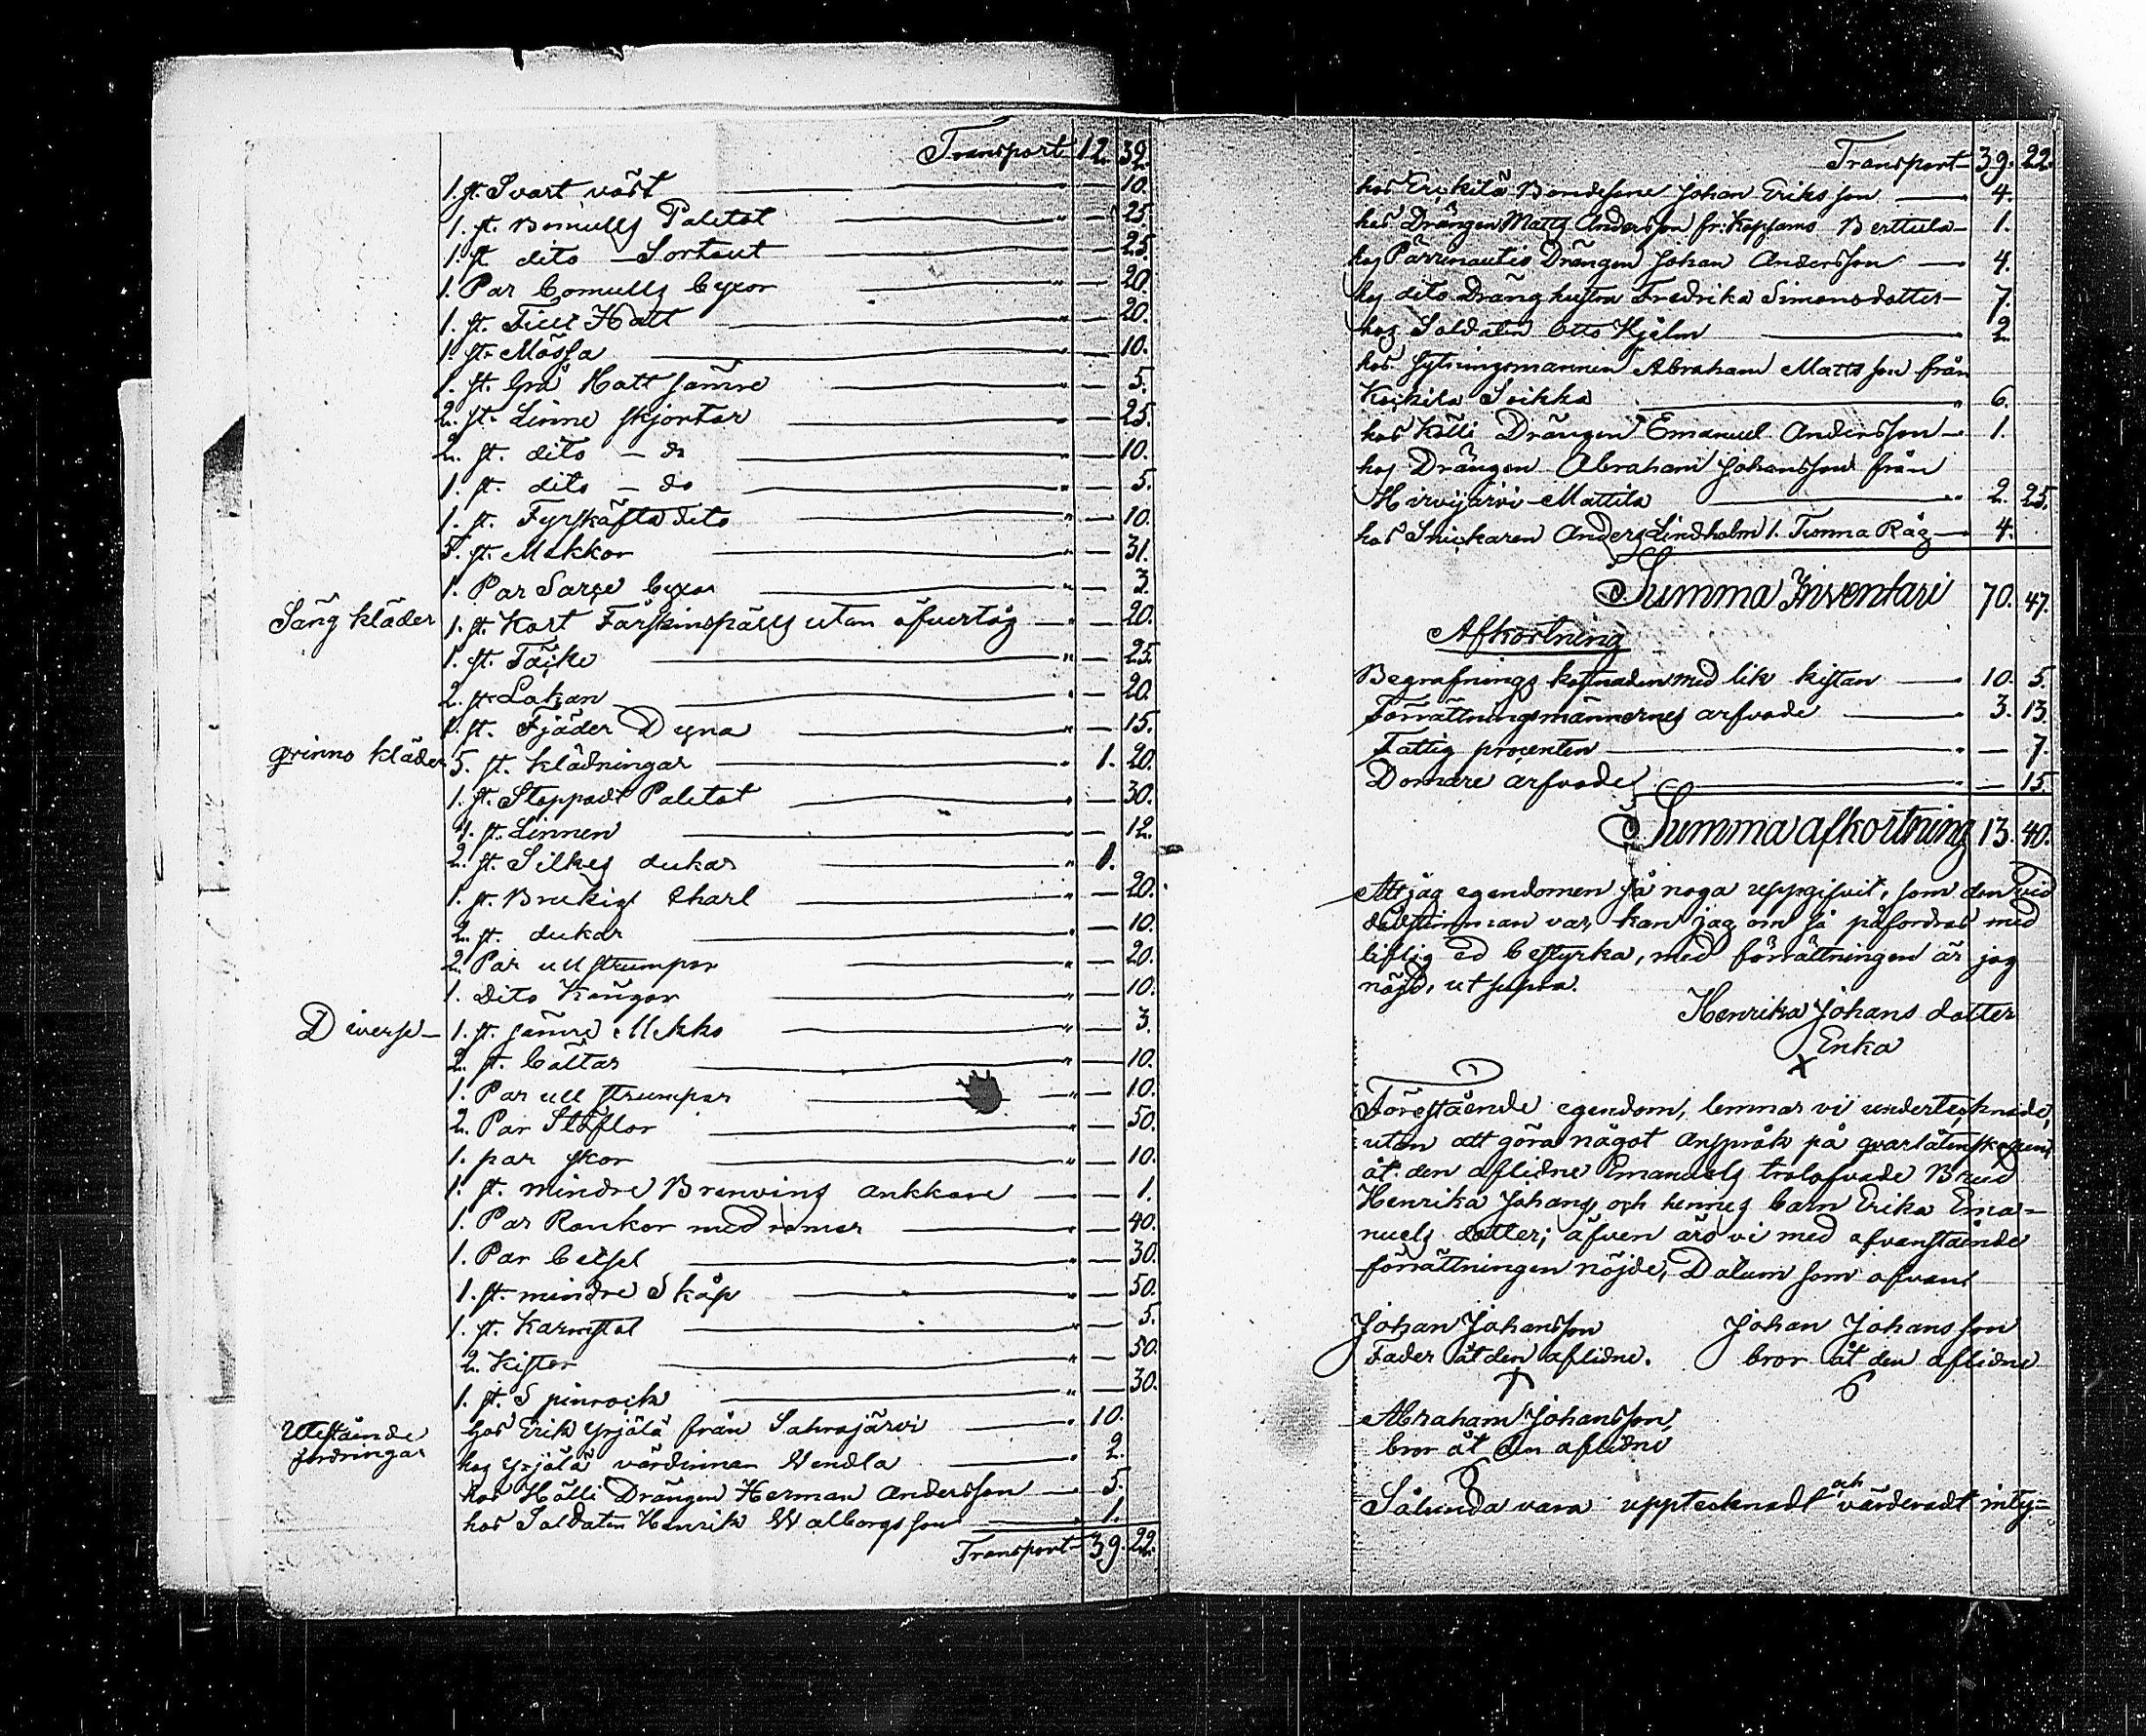 Transport 12. 39.
1. st. Svart väst — 10.
1. st. Bomulls Paletot " — 25
1. st dito – Sortout " — 25.
1. Par bomulls byxor " — 20.
1. st. Filt Hatt " — 20.
1. st. Mössa " — 10.
1. st. Grå Hatt sämre " — 5.
2. st. Linne skjortor " — 25.
2. st. dito – do " — 10.
1. st. dito – do " — 5.
1. st. Fyrskäfta dito " — 10.
5. st. Mekkor " — 31.
1. Par Sarge byxor " — 3.
Säng kläder 1. st. Kort Fårskinspälls utan öfvertög — 20.
1. st. Täcke " — 25.
2. st. Lakan " — 20.
1. st. Fjäder Dyna " — 15.
qvinns kläder 5. st. Klädningar " 1. 20.
1. st. Stoppadt Paletot " — 30.
4. st. Linnen " — 12.
2. st. Silkes dukar " 1.
1. st. Brukigt Charl " — 20.
2. st. dukar " — 10.
2. Par ull strumpor " — 20.
1. dito Kängor " — 10.
Diverse – 1. st. sämre Mekko " — 3.
2. st. bältar " — 10.
1. Par ull strumpor " — 10.
2. Par Stöflor " — 50.
1. par skor " — 10.
1. st. mindre Brenvins ankkare — 1.
1. Par Rankor med remar " — 40.
1. Par betsel " — 30.
1. st. mindre Skåp " — 50.
1. st. Karmstol " — 5.
2. Kistor " — 50.
1. st. Spinrock " — 30.
Utestående fordringar hos Erik Yrjölä från Sahrajärvi " 10.
hos Yrjölä värdinnan Wendla " 2.
hos Hölli Drängen Herman Andersson 5.
hos Soldaten Henrik Walborgsson 1.
Transport 39. 22.
Transport 39. 22.
hos Erickilä Bondesone Johan Eriksson — 4.
hos Drängen Matts Andersson fr: Kopsamo Berttula – 1.
hos Pärrinautio Drängen Johan Andersson — 4.
hos dito Dräng hustru Fredrika Simonsdotter – 7.
hos Soldaten Otto Hjelm 2.
hos Sytningsmannen Abraham Mattsson från
Kackila Soikka 6.
hos Kölli Drängen Emanuel Andersson – 1.
hos Drängen Abraham Johansson från
Hirvijärvi Mattila 2. 25.
hos Snickaren Anders Lindholm 1. Tunna Råg – 4.
Summa Inventari 70. 47.
Afkortning
Begrafnings kostnaden med lik kistan — 10. 5.
Förrättningsmännernes arfvode — 3. 13.
Fattig procenten — 7.
Domare arfvode — 15.
Summa afkortning 13. 40.
Att jag egendomen så noga uppgifvit, som den vid
dödstimman var, kan jag om så påfordras med
liflig ed bestyrka, med förrättningen är jag
nöjd, ut supra.
Henrika Johans dotter
Enka
x
Förestående egendom, lemnar vi undertecknade,
utan att göra något anspråk på qvarlåtenskapen,
åt den aflidne Emanuels trolofvade Brud
Henrika Johans, och hennes barn Erika Ema-
nuels dotter; äfven äro vi med ofvanstående
förrättningen nöjde, Datum som ofvan
Johan Johansson Johan Johansson
Fader åt den aflidne. bror åt den aflidne
Abraham Johansson,
bror åt den aflidne
Sålunda vara upptecknadt och värderadt inty-